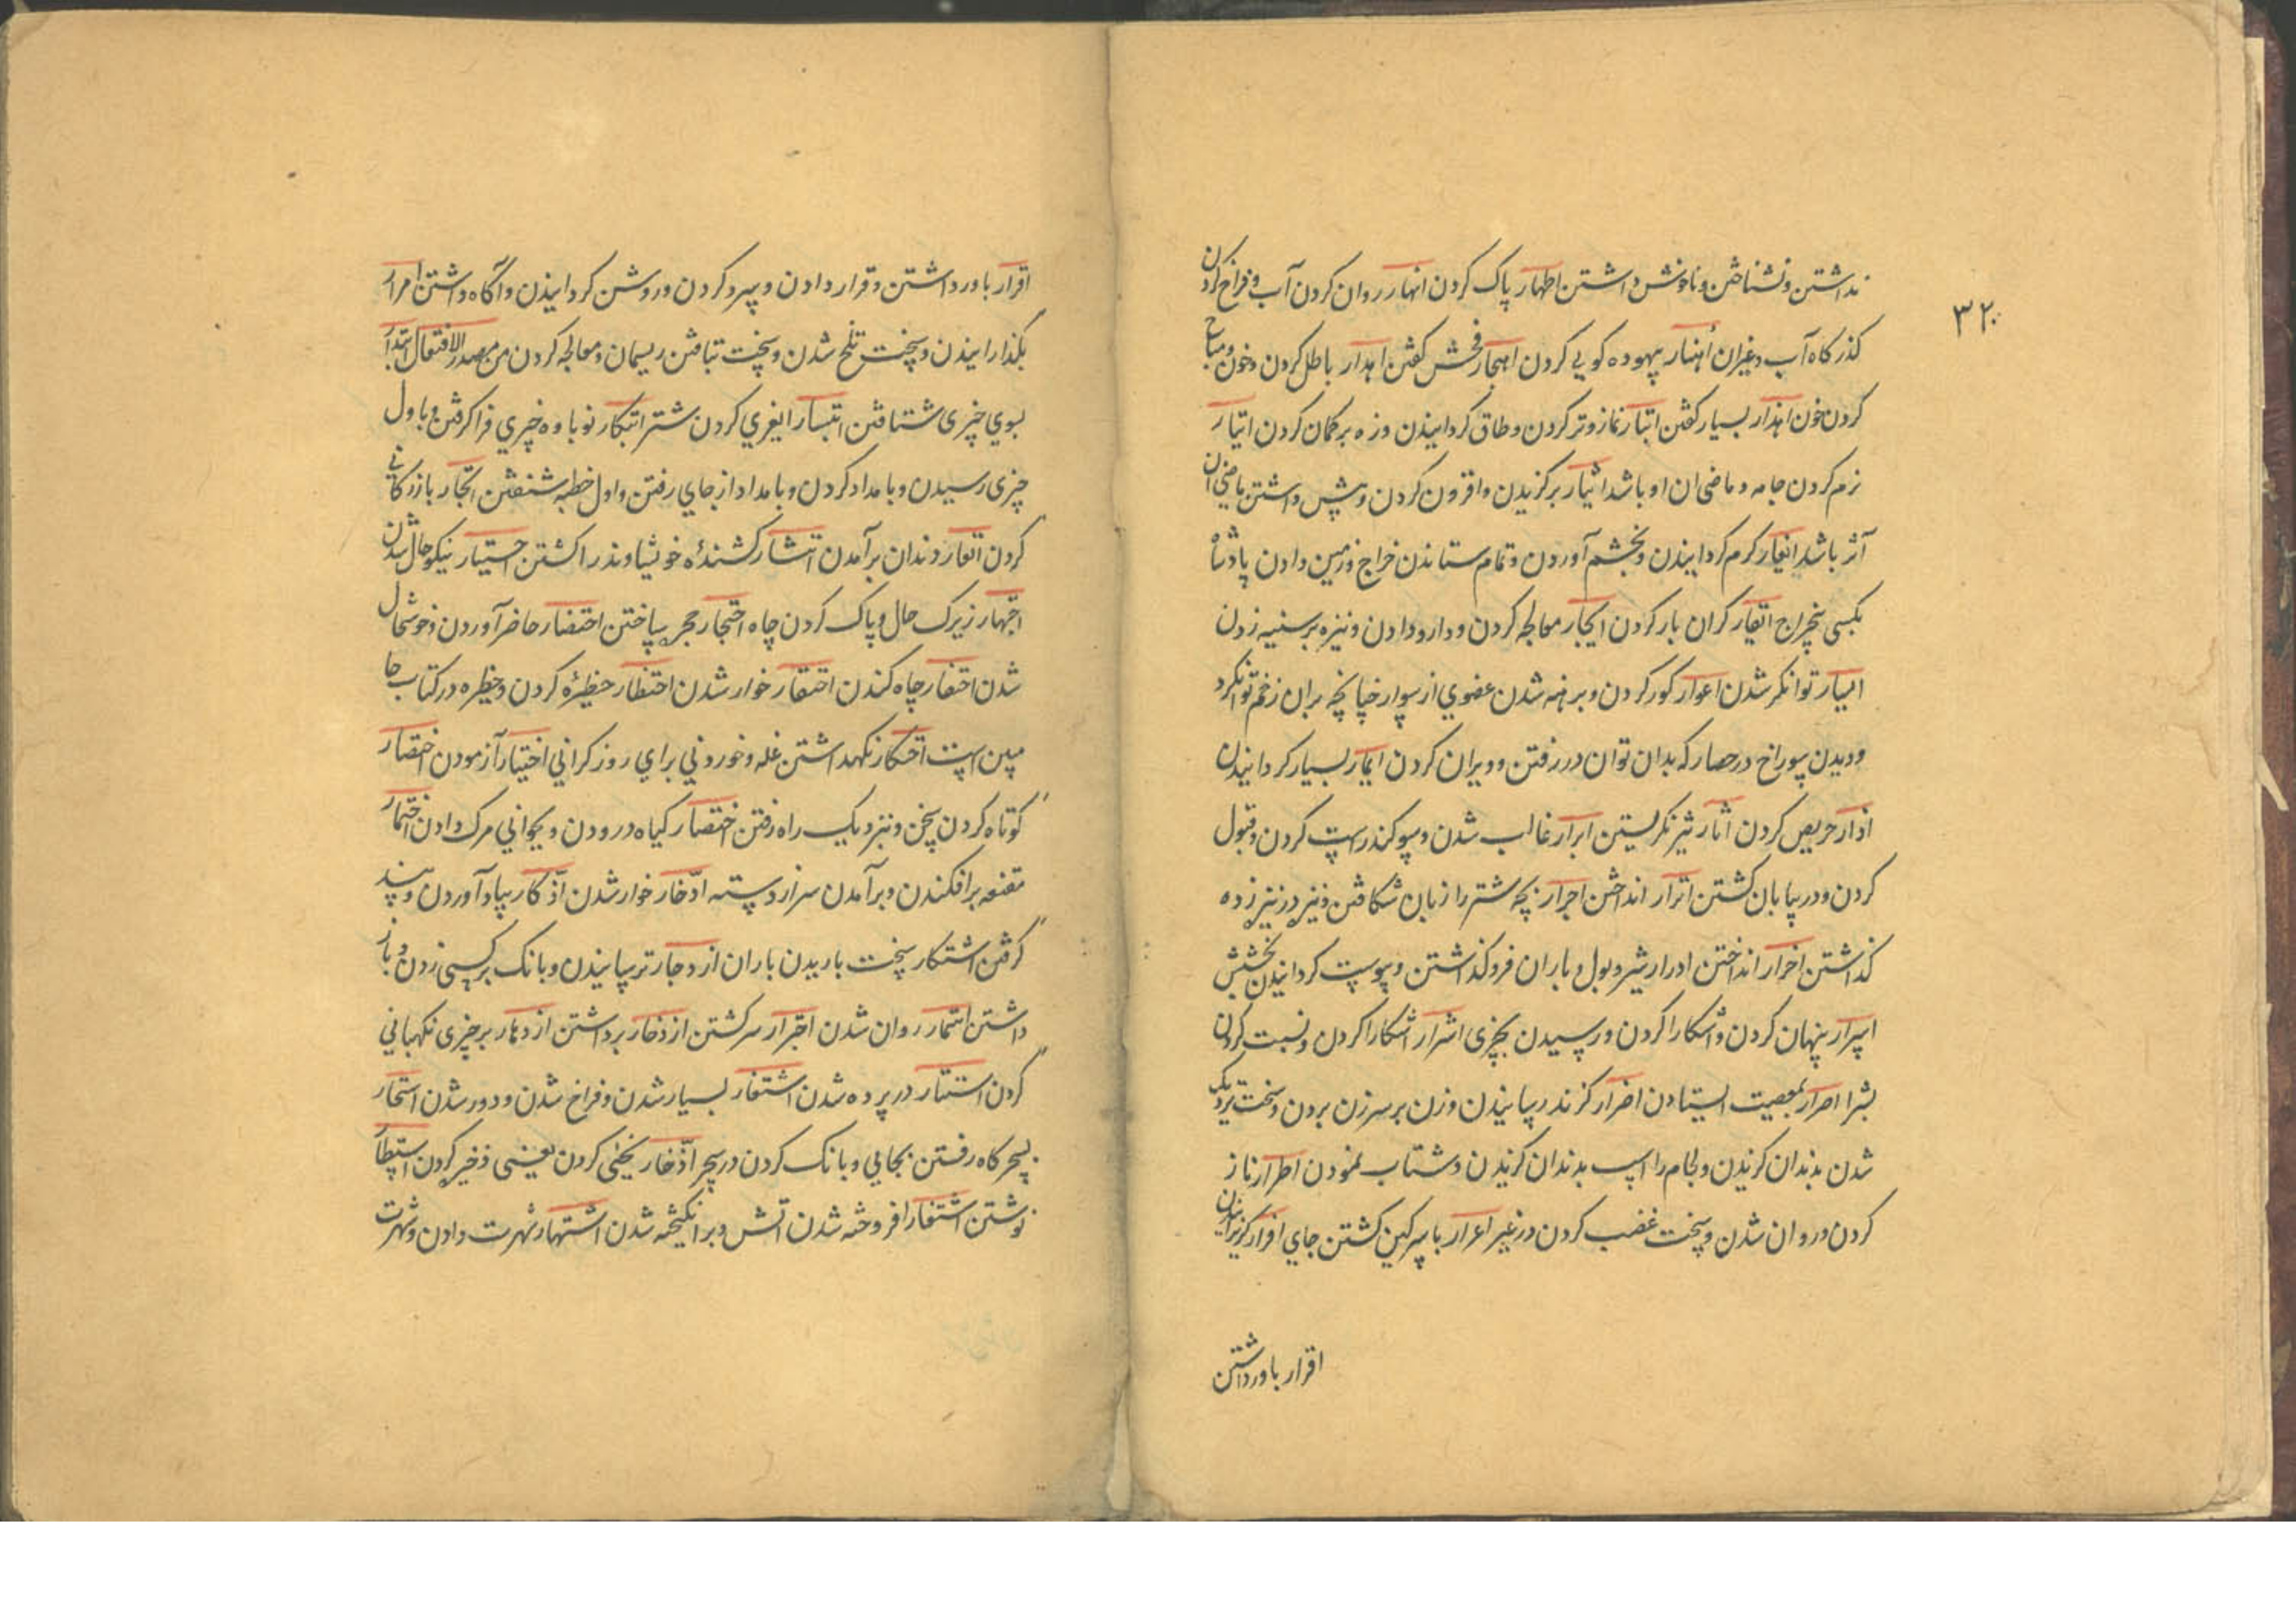 ۳۲
نداشتن و نشناختن و ناخوش داشتن اطهار پاک کردن انهار روان کردن آب و فراخ کردن
گذرگاه آب و غیران اهنار بیهوده کویی کردن اهجار فحش کفتن اهدار باطل کردن و خون و مباح
کردن خون اهذار بسیار کفتن اتبار نماز وتر کردن و طاق کردانیدن و زه بر کمان کردن اتیار
نرم کردن جامه و ماضی ان اوباشد ایثار برکزیدن و افزون کردن و پیش داشتن ماضی ان
آثر باشد ایغار کرم کردانیدن و بخشم آوردن و تمام ستاندن خراج و زمین دادن پادشاه
بکسی بخراج ایقار کران بار کردن ایجار معالجه کردن و دارو دادن و نیزه بر سینه زدن
ایسار توانکر شدن اعوار کور کردن و برهنه شدن عضوی از سوار چنانچه بران زخم توان کرد
و دیدن سوراخ در حصار که بدان توان در رفتن و ویران کردن ایمار بسیار کردانیدن
اذار حریص کردن اثار تیز نکریستن ابرار غالب شدن و سوکند راست کردن و قبول
کردن و در بیابان کشتن اترار انداختن اجرار بچه شتر را زبان شکافتن و نیزه در نیزه زده
کذاشتن اخرار انداختن ادرار شیر و بول و باران فرو کذاشتن و پیوست کردانیدن بخشش
اسرار پنهان کردن و اشکارا کردن و رسیدن بچیزی اشرار اشکارا کردن و نسبت کردن
بشر اصرار بمعصیت ایستادن اضرار کزند رسانیدن و زن بر سر زن بردن و سخت نزدیک
شدن بدندان کزیدن و لجام را اسب بدندان کزیدن و شتاب نمودن اطرار ناز
کردن و روان شدن و سخت غضب کردن در غیر اعرار با سرکین کشتن جای افرار کریزانیدن
اقرار باور داشتن
اقرار باور داشتن و قرار دادن و سرد کردن و روشن کردانیدن و آکاه داشتن امرار
بکذرانیدن و سخت تلخ شدن و سخت تافتن ریسمان و معالجه کردن من مصدر الافتعال ابتدار
بسوی چیزی شتافتن ابتسار ایغری کردن شتر ابتکار نوباوه چیزی فرا کرفتن و باول
چیزی رسیدن و بامداد کردن و بامداد از جای رفتن و اول خطبه شنفتن اتجار بازرکانی
کردن اتغار دندان برآمدن اتشار کشندهٔ خویشاوند را کشتن اجتیار نیکو حال شدن
اجتهار زیرک حال و پاک کردن چاه احتجار حجر ساختن احتضار حاضر آوردن و خوشحال
شدن احتفار چاه کندن احتقار خوار شدن احتظار حظیره کردن و حظیره در کتاب حا
مبین است احتکار نکهداشتن غله و خوردنی برای روز کرانی اختیار آزمودن اختصار
کوتاه کردن سخن و نزدیک راه رفتن اختضار کیاه درودن و بجوانی مرک دادن اختمار
مقنعه برافکندن و برآمدن سرازدسته ادّخار خوار شدن ادّکار بیاد آوردن و پند
کرفتن اشتکار سخت باریدن باران ازدجار ترسانیدن و بانک بر کسی زدن و باز
داشتن استمار روان شدن اجترار سر کشتن ازدخار برداشتن ازدهار بر چیزی نکهبانی
کردن استتار در پرده شدن اشتغار بسیار شدن و فراخ شدن و دور شدن استحار
بسحرکاه رفتن بجایی و بانک کردن در سحر ادّخار یخنی کردن یعنی ذخیره کردن استطار
نوشتن اشتفار افروخته شدن اتش و برانکیخته شدن اشتهار شهرت دادن و شهرت